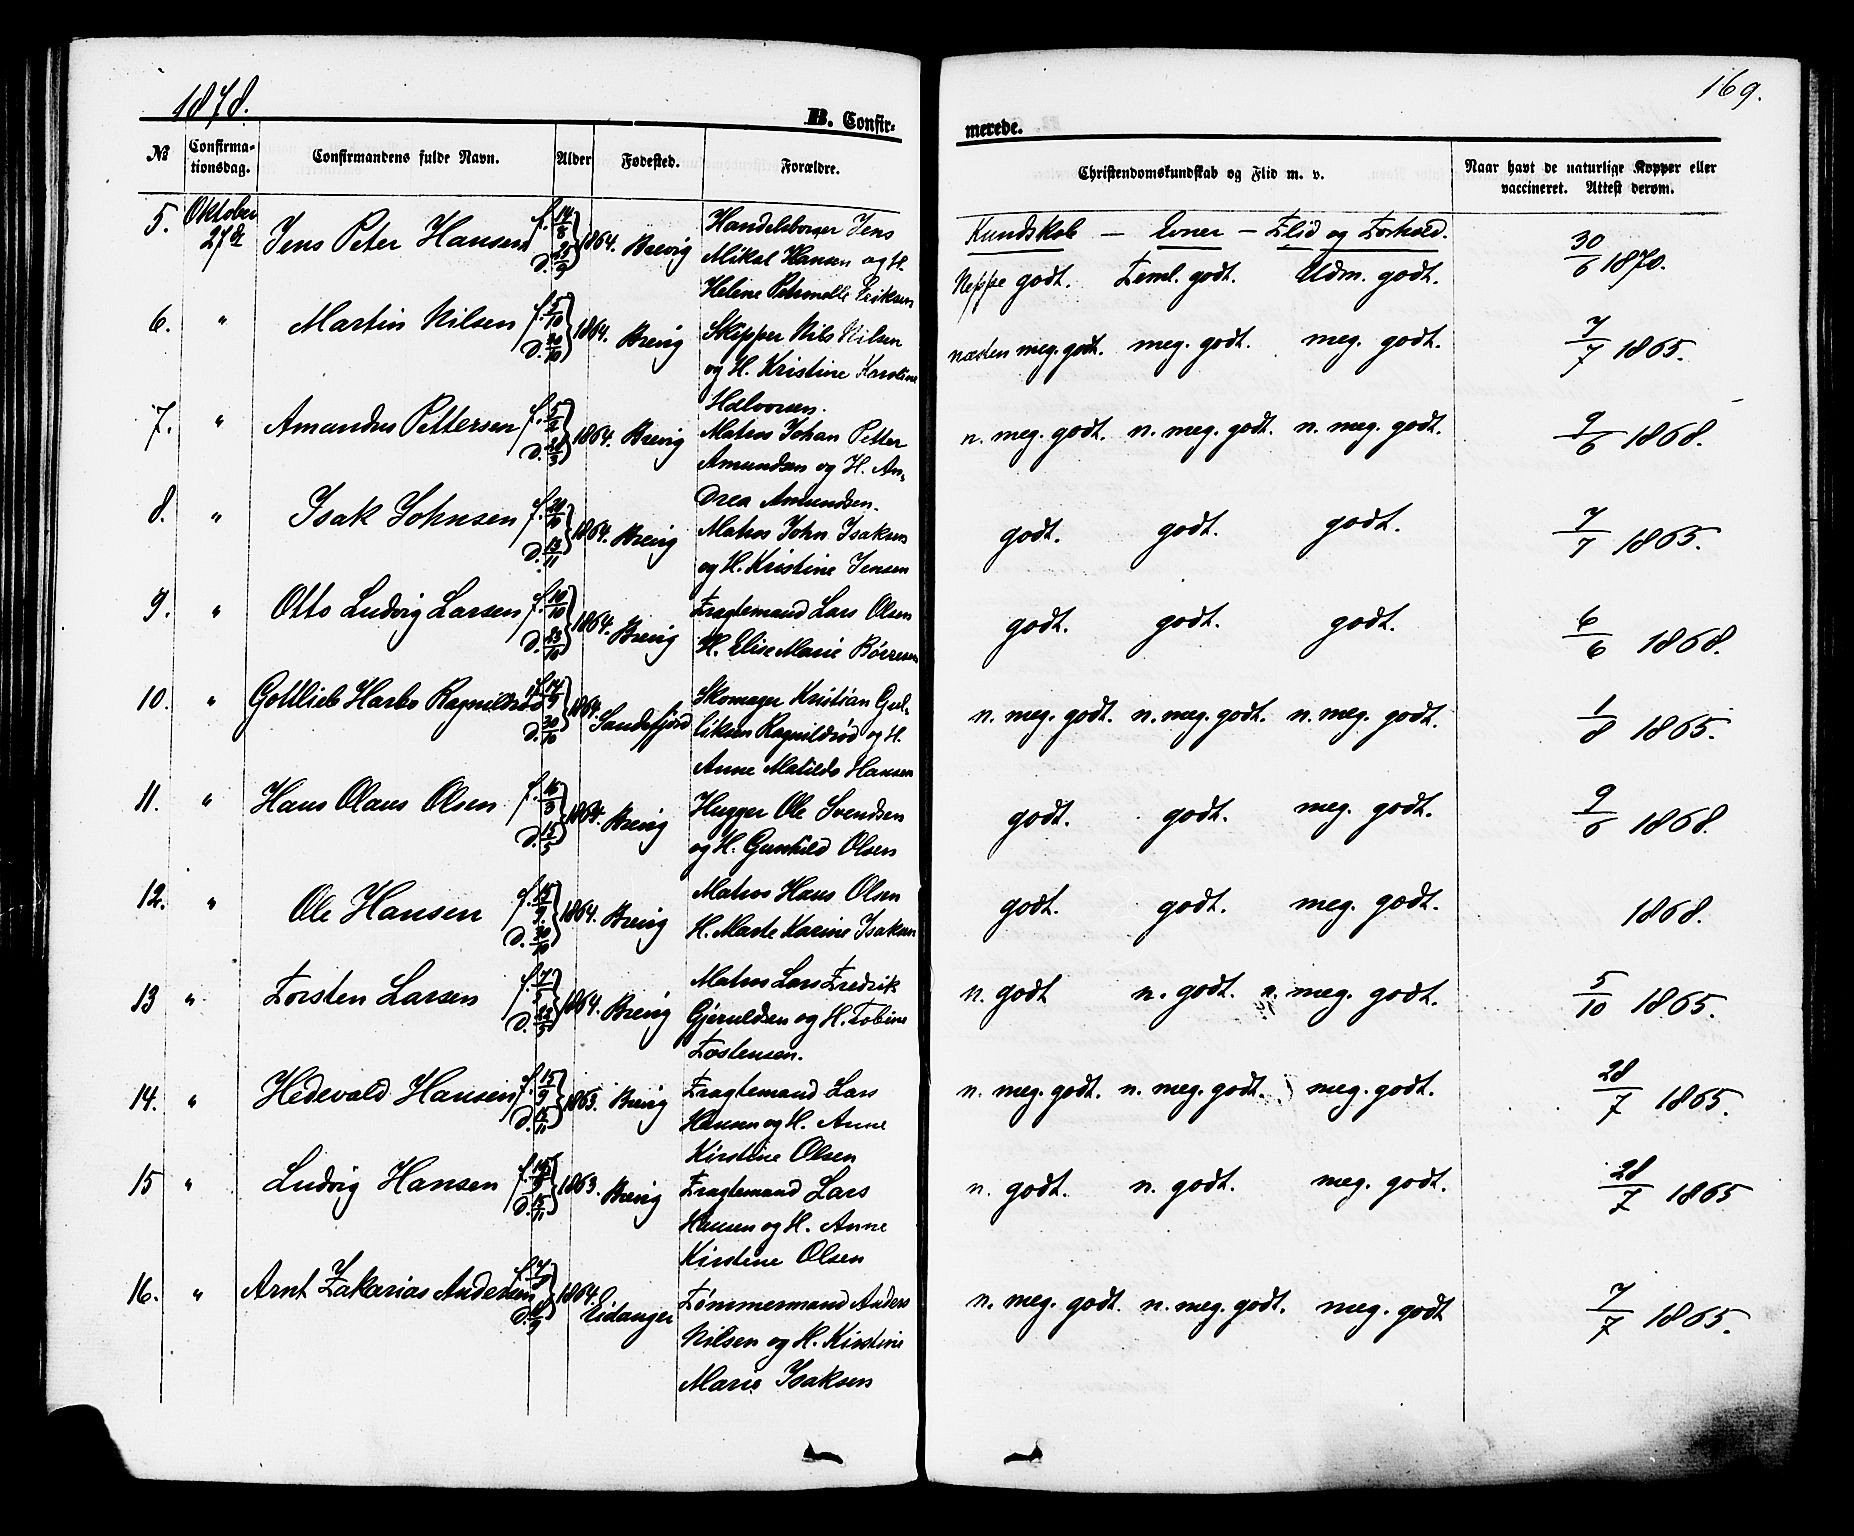 1878.
169.
B. Confir-
merede.
No Confirmationsdag. Confirmandens fulde Navn. Alder Fødested. Forældre. Christendomskundskab og Flid m. v. Naar havt de naturlige Kopper eller vaccineret. Attest derom.
Kundskab — Evner — Flid og Forhold.
5. Oktober 27de Jens Peter Hansen f. 14/8 d. 1864. Brevig
Handelsborger Jens
Mikal Hansen og H.
Helene Petronelle Eriksen
Neppe godt. Teml. godt. Udm. godt. 30/6 1870.
6. " Martin Nilsen f. 5/10 d. 30/10 1864. Brevig
Skipper Nils Nilsen
og H. Kristine Karoline
Halvorsen.
næsten meg. godt. meg. godt. meg. godt. 7/7 1865.
7. " Amandus Pettersen f. d. 1864. Brevig
Matros Johan Petter
Amundsen og H. An-
drea Amundsen.
n. meg. godt. n. meg. godt. n. meg. godt. 9/6 1868.
8. " Isak Johnsen f. 20/10 d. 13/11 1864. Brevig
Matros John Isaksen
og H. Kristine Jensen
godt. godt. godt. 7/7 1865.
9. " Otto Ludvig Larsen f. 10/10 d. 23/10 1864. Brevig
Fragtemand Lars Olsen
H. Elise Marie Börresen
godt. godt. godt. 6/6 1868.
10. " Gottlieb Harbo Ragnildsröd f. 14/9 d. 30/10 1864. Sandefjord
Skomager Kristian Gul-
liksen Ragnildsröd og H.
Anne Matilde Hansen
n. meg. godt. n. meg. godt. n. meg. godt. 1/8 1865.
11. " Hans Olaus Olsen f. 16/3 d. 15/5 1864. Brevig
Hugger Ole Svendsen
og H. Gunhild Olsen
godt. godt. meg. godt. 9/6 1868.
12. " Ole Hansen f. 15/9 d. 30/10 1864. Brevig
Matros Hans Olsen
H. Marte Karine Isaksen
godt. godt. meg. godt. 1868.
13 " Torsten Larsen f. d. 1864. Brevig
Matros Lars Fredrik
Gjeruldsen og H. Tobine
Tostensen.
n. godt n. godt. n. meg. godt. 5/10 1865.
14. " Hedevald Hansen f. 15/9 d. 15/11 1863. Brevig
Fragtemand Lars
Hansen og H. Anne
Kirstine Olsen
n. meg. godt. n. meg. godt. meg. godt. 28/7 1865.
15 " Ludvig Hansen f. 15/9 d. 15/11 1863. Brevig
Fragtemand Lars
Hansen og H. Anne
Kirstine Olsen
n. godt. n. godt. meg. godt. 28/7 1865
16. " Arnt Zakarias Andersen f. d. 1864. Eidanger
Tömmermand Anders
Nilsen og H. Kirstine
Marie Isaksen
n. meg. godt. n. meg. godt. meg. godt 7/7 1865.